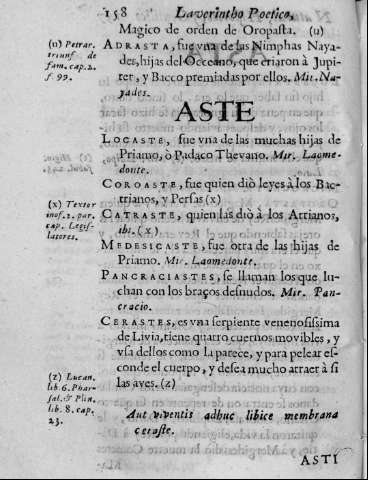 158 Laverintho Poetico,
Magico de orden de Oropasta. (u)
(u) Petrar.
triunf. de
fam. cap. 2.
f. 99.
ADRASTA, fue vna de las Nimphas Naya-
des, hijas del Occeano, que criaron à Jupi-
ter, y Bacco premiadas por ellos. Mir. Na-
yades.
ASTE
LOCASTE, fue vna de las muchas hijas de
Priamo, ò Padaço Thevano. Mir. Laome-
donte.
COROASTE, fue quien diò leyes à los Bac-
trianos, y Persas (x)
(x) Textor
inof. 2. par.
cap. Legis-
latores.
CATRASTE, quien las diò à los Arrianos,
ibi. (x)
MEDESICASTE, fue otra de las hijas de
Priamo. Mir. Laomedonte.
PANCRACIASTES, se llaman los que lu-
chan con los braços desnudos. Mir. Pan-
cracio.
CERASTES, es vna serpiente venenosissima
de Livia, tiene quatro cuernos movibles, y
vsa dellos como la parece, y para pelear es-
conde el cuerpo, y dexa mucho atraer à si
las aves. (z)
(z) Lucan.
lib. 6. Phar-
sal. & Plin.
lib. 8. cap.
23.
Aut viventis adhuc libice membrana
ceraste.
ASTI